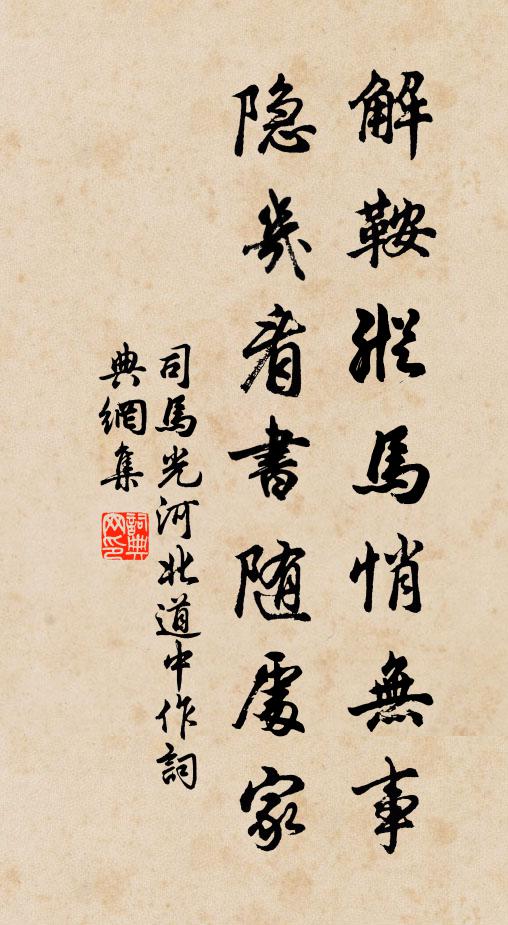 解鞍縱馬悄無事
隐幾看書随處家
司馬光河北道中作詞
典網集
詞典網印